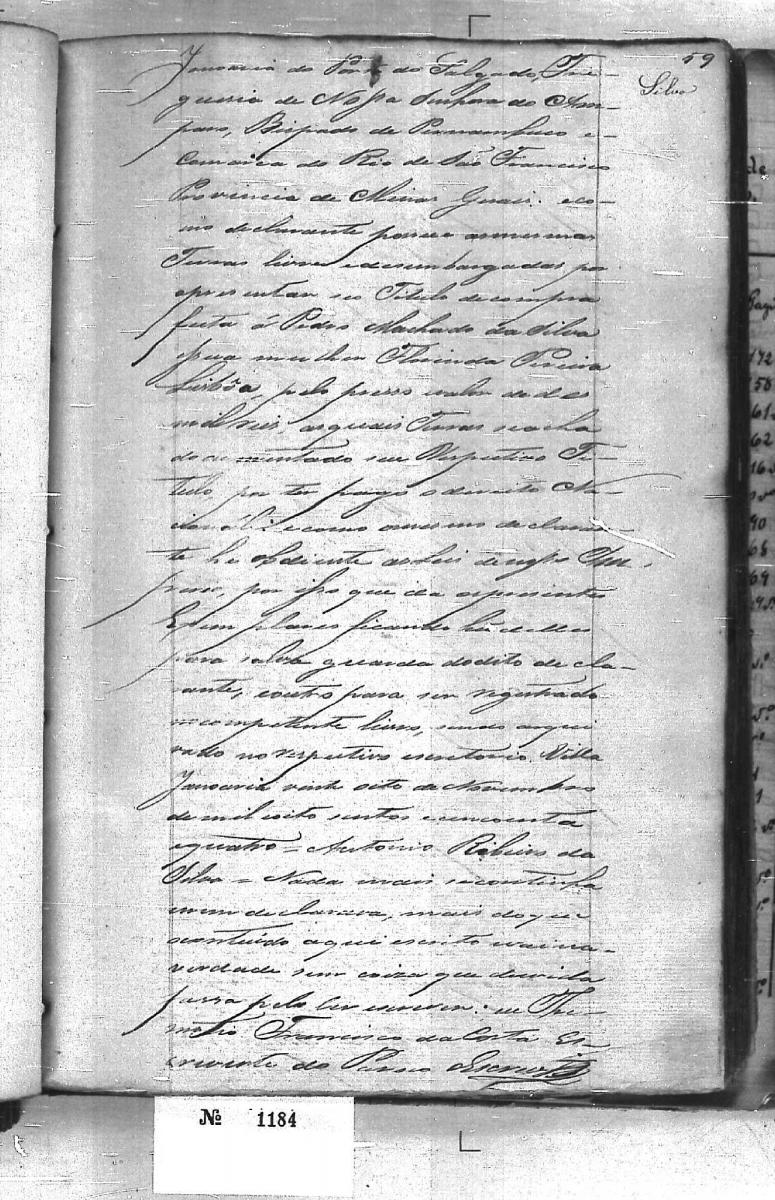 59
Silva
Januaria do Porto do Salgado, Fre-
guesia de Nossa Senhora do Am-
paro, Bispado de Pernambuco e
Comarca do Rio de São Francisco
Provincia de Minas Geraes: e co-
mo declarante possue as mesmas
Terras livres e desembargadas por
apresentar seo Titulo de compra
feita á Pedro Machado da Silva
e sua mulher Florinda Pereira
Lisbôa, pelo preço e valor de des
mil reis, as quais Terras se acha
documentado seu Respectivo Ti-
tulo, por ter pago o dereito Na-
cional: e como o mesmo declaran-
te he obdiente as Leis de nosso Im-
perio, por isso que da o presente
Exemplares ficando hũ delles
para salva guarda do dito decla-
rante, e outro para ser registrado
no competente livro, sendo arqui
vado no respectivo escritorio. Villa
Januaria vinte oito de Novembro
de mil oito sentos e cincoenta
e quatro = Antonio Ribeiro da
Silva = Nada mais se continha
em declarava, mais do que
o contiudo aqui escrito vai na
verdade sem coiza que duvida
fassa pelo ler e escrever: eu
Francisco da Costa Es-
crevente do
Nº 1184